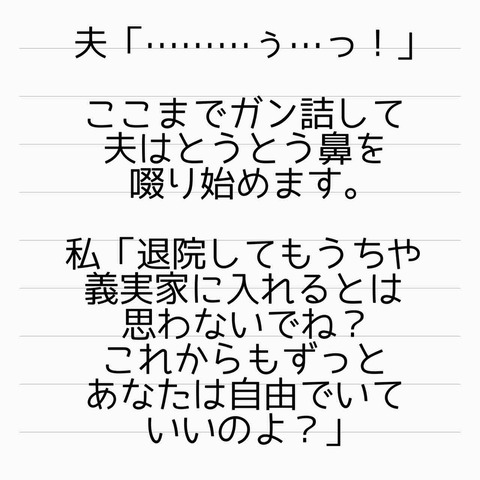 夫「………ぅ…っ！」
ここまでガン詰して
夫はとうとう鼻を
啜り始めます。
私「退院してもうちや
義実家に入れるとは
思わないでね？
これからもずっと
あなたは自由でいて
いいのよ？」